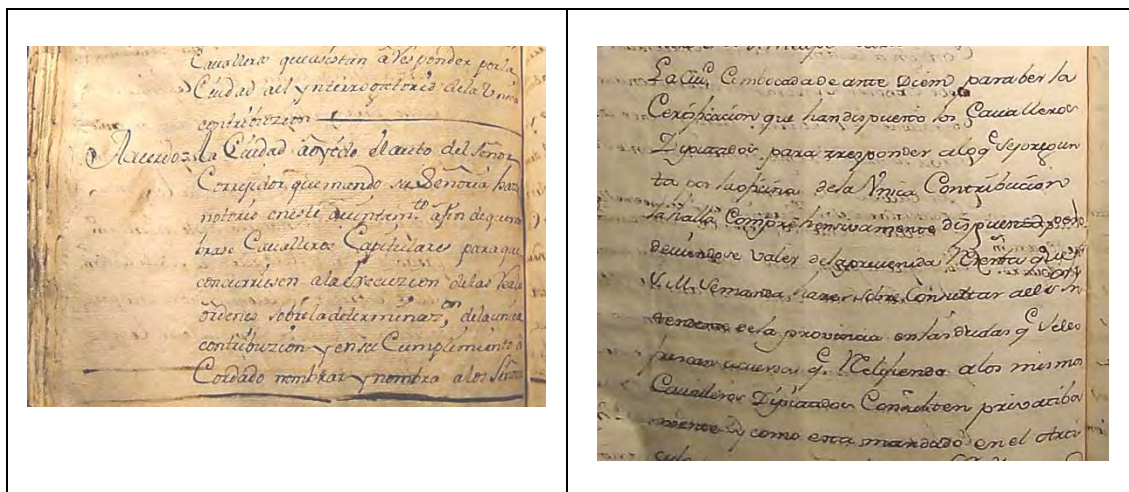 Cavalleros que asistan a Responder por la
Ciudad al ynterrogatorio de la Unica
contribuzion
Acuerdo La Ciudad ha oydo el auto del Señor
Correjidor que mando su Señoria hazer
notorio en este Aiuntam.to a fin de que nom
brase Cavalleros Capitulares para que
concurriesen a la execuzion de las Reales
ordenes sobre la determinaz.on de la unica
contribuzion y en su Cumplimiento a
Cordado nombrar y nombra a los Señores
La Ciu.d Combocada de ante Diem para ber la
Certificacion que han dispuesto los Cavalleros
Diputados para rresponder a lo q.e se pregun
ta por la oficina de la Vnica Contribucion
la halla Comprehensivamente dispuesta
deviendose valer de la prevenida
V.M. se manda hazer sobre Consultar al
de la provincia en las dudas q.e se les
q.e a los mismos
Cavalleros Diputados Consulten privatiba
mente y como esta mandado en el Arti
culo